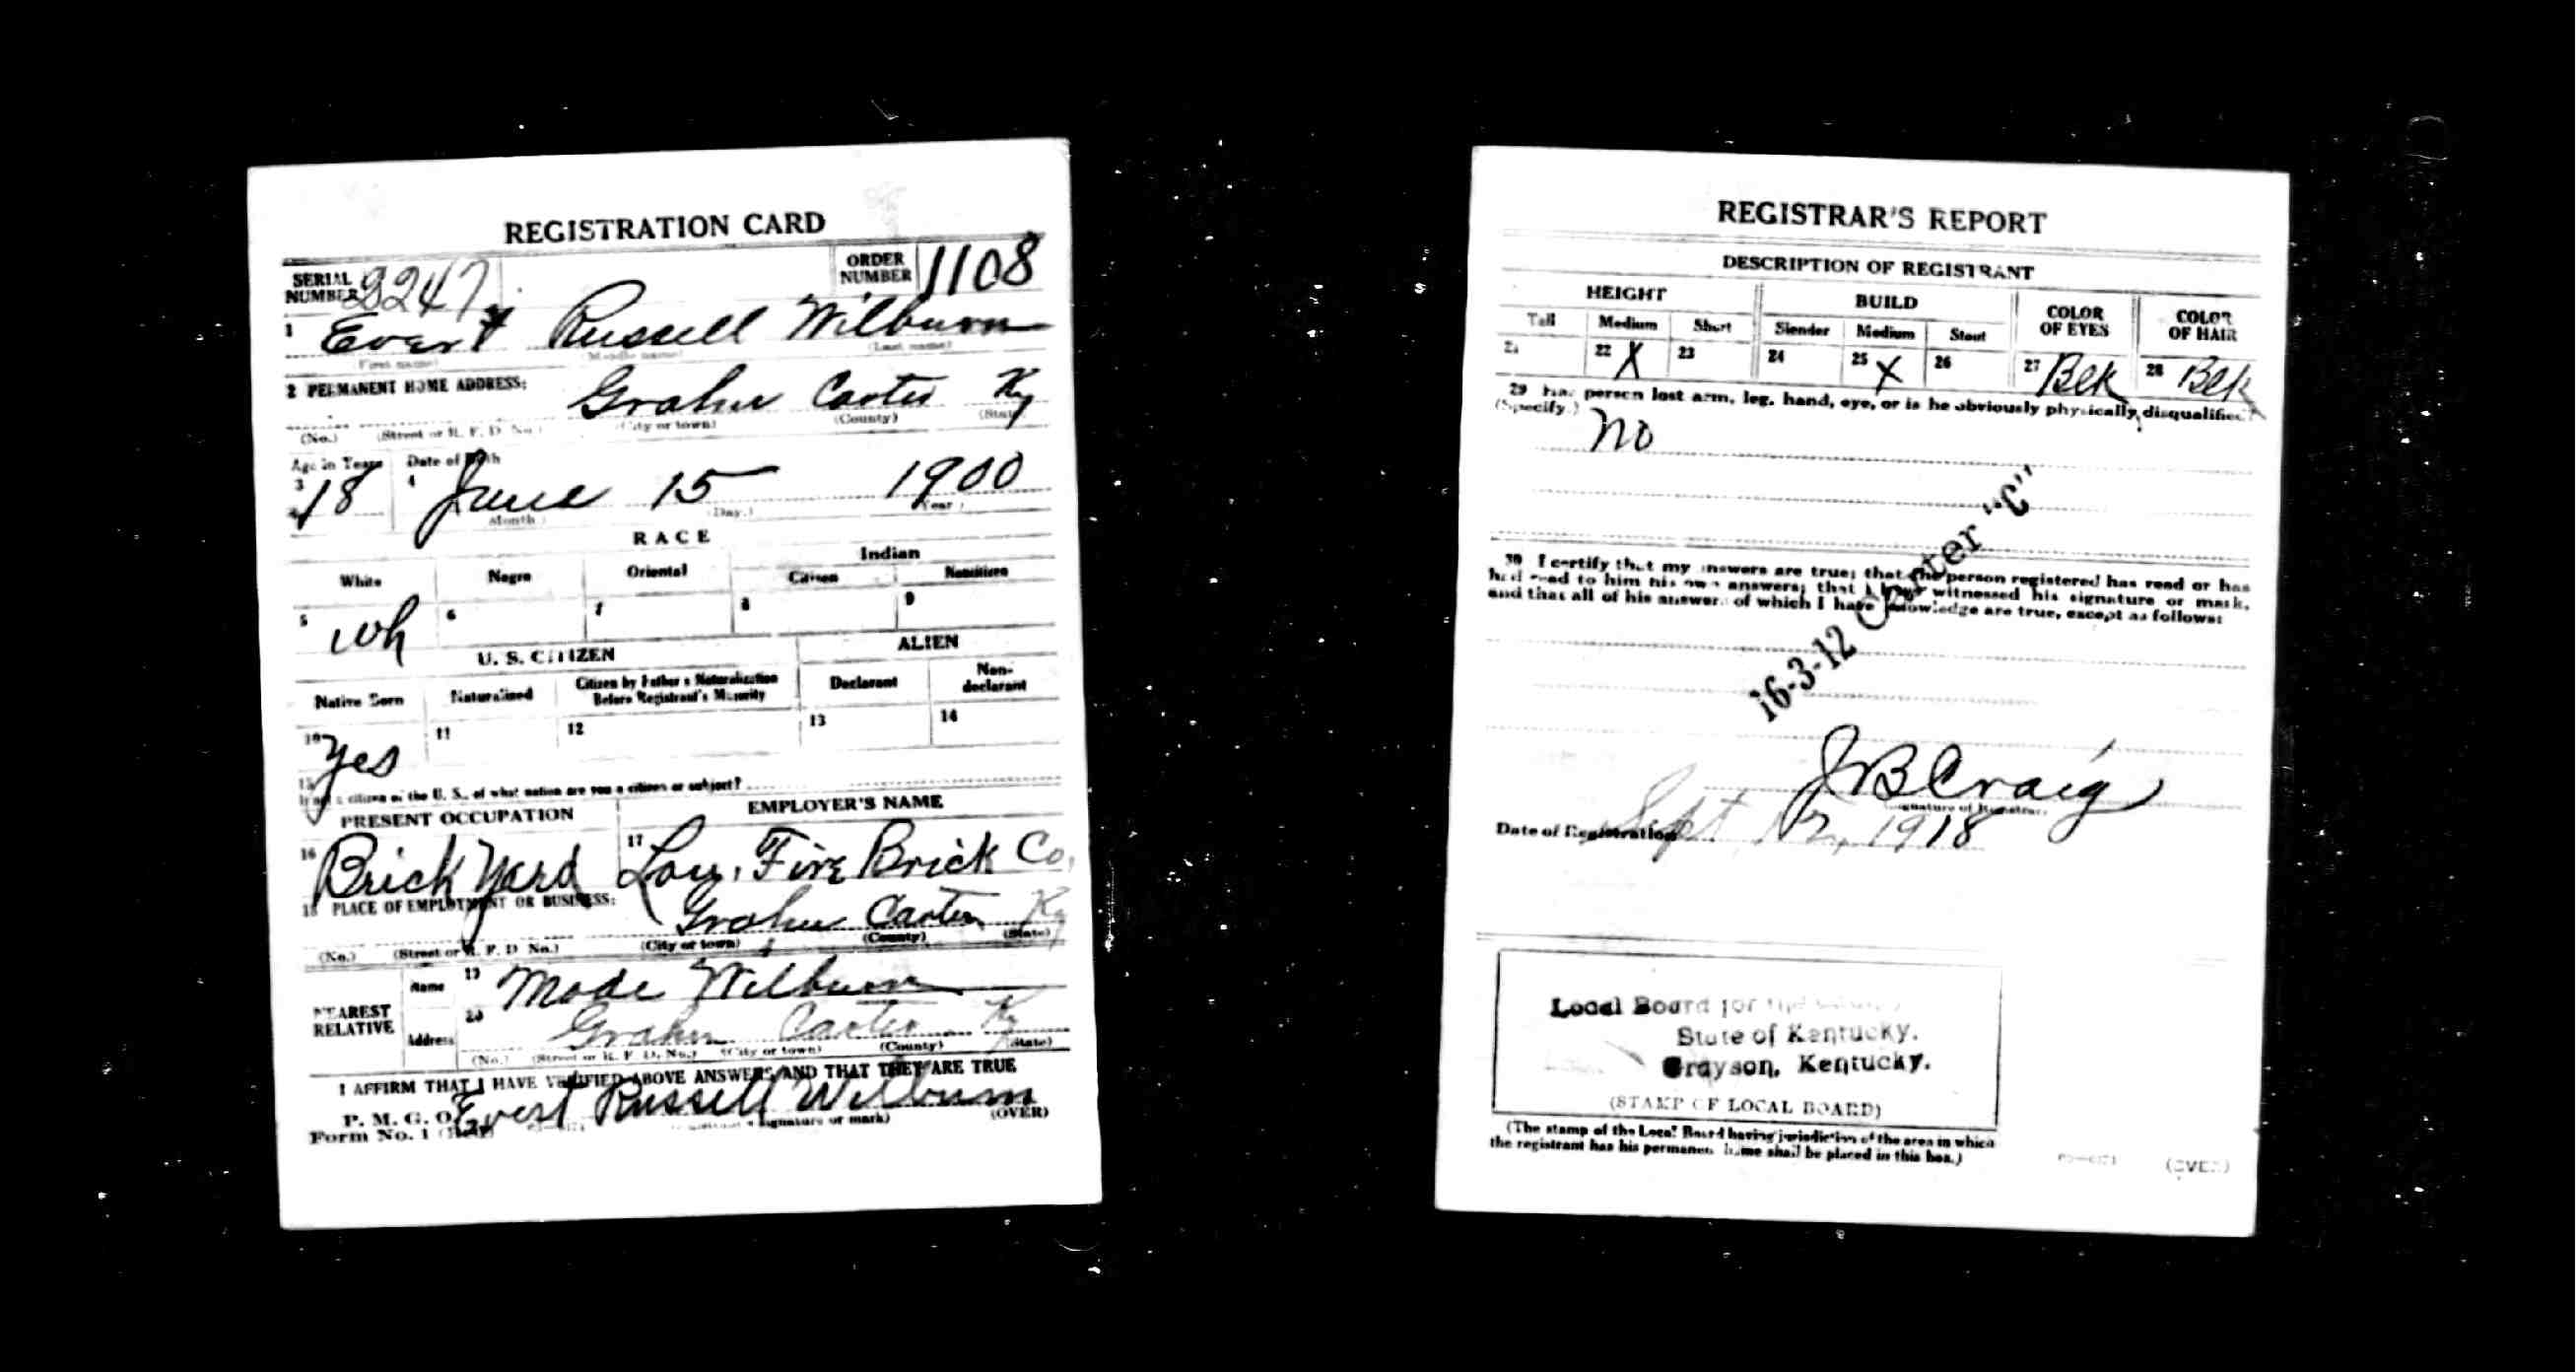 REGISTRATION CARD
SERIAL NUMBER 2247 ORDER NUMBER 1108
1 Evert Russell Wilburn
(First name) (Middle name) (Last name)
2 PERMANENT HOME ADDRESS:
Grahn Carter Ky
(No.) (Street or R. F. D. No.) (City or town) (County) (State)
Age in Years Date of Birth
3 18 4 June 15 1900
(Month.) (Day.) (Year.)
RACE
White Negro Oriental Indian
Citizen Noncitizen
5 wh 6 7 8 9
U. S. CITIZEN ALIEN
Native Born Naturalized Citizen by Father's Naturalization Before Registrant's Majority Declarant Non-declarant
10 yes 11 12 13 14
15 If not a citizen of the U. S., of what nation are you a citizen or subject?
PRESENT OCCUPATION EMPLOYER'S NAME
16 Brick Yard 17 Lou. Fire Brick Co.
18 PLACE OF EMPLOYMENT OR BUSINESS:
Grahn Carter Ky
(No.) (Street or R. F. D. No.) (City or town) (County) (State)
NEAREST RELATIVE Name 19 Mode Wilburn
Address 20 Grahn Carter Ky
(No.) (Street or R. F. D. No.) (City or town) (County) (State)
I AFFIRM THAT I HAVE VERIFIED ABOVE ANSWERS AND THAT THEY ARE TRUE
P. M. G. O. Evert Russell Wilburn
Form No. 1 (Red) (Registrant's signature or mark) (OVER)
REGISTRAR'S REPORT
DESCRIPTION OF REGISTRANT
HEIGHT BUILD COLOR OF EYES COLOR OF HAIR
Tall Medium Short Slender Medium Stout
21 22 X 23 24 25 X 26 27 Blk 28 Blk
29 Has person lost arm, leg, hand, eye, or is he obviously physically disqualified?
(Specify.)
no
30 I certify that my answers are true; that the person registered has read or has
had read to him his own answers; that I have witnessed his signature or mark,
and that all of his answers of which I have knowledge are true, except as follows:
16-3-12 Carter "C"
J B Craig
(Signature of Registrar)
Date of Registration Sept 12, 1918
Local Board for the
State of Kentucky.
Grayson, Kentucky.
(STAMP OF LOCAL BOARD)
(The stamp of the Local Board having jurisdiction of the area in which
the registrant has his permanent home shall be placed in this box.)
(OVER)